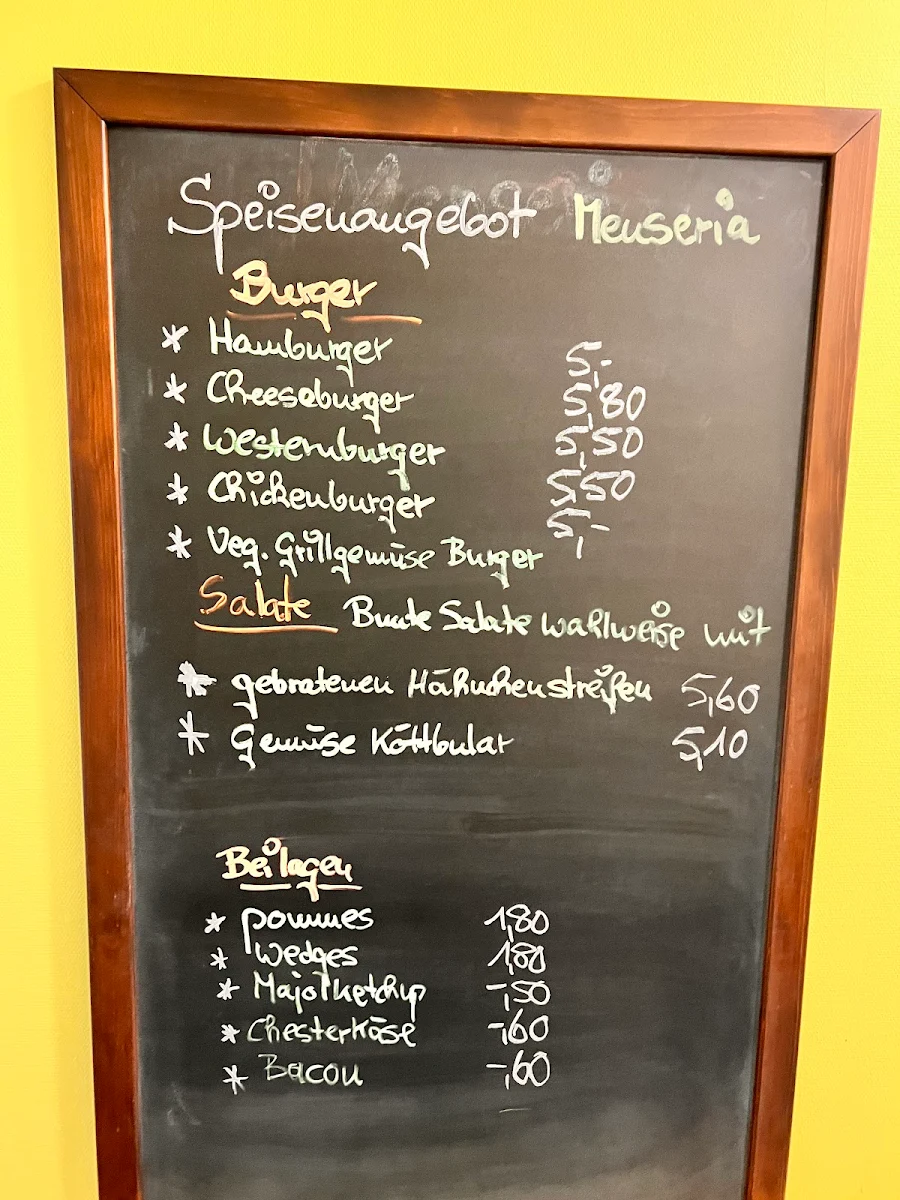 Speisenangebot Menseria
Burger
* Hamburger 5,-
* Cheeseburger 5,80
* Westernburger 5,50
* Chickenburger 5,50
* Veg. Grillgemüse Burger 5,-
Salate Bunte Salate wahlweise mit
* gebratenen Hähnchenstreifen 5,60
* Gemüse Köttbular 5,10
Beilagen
* pommes 1,80
* Wedges 1,80
* Majo/ketchup -,50
* Chesterkäse -,60
* Bacon -,60